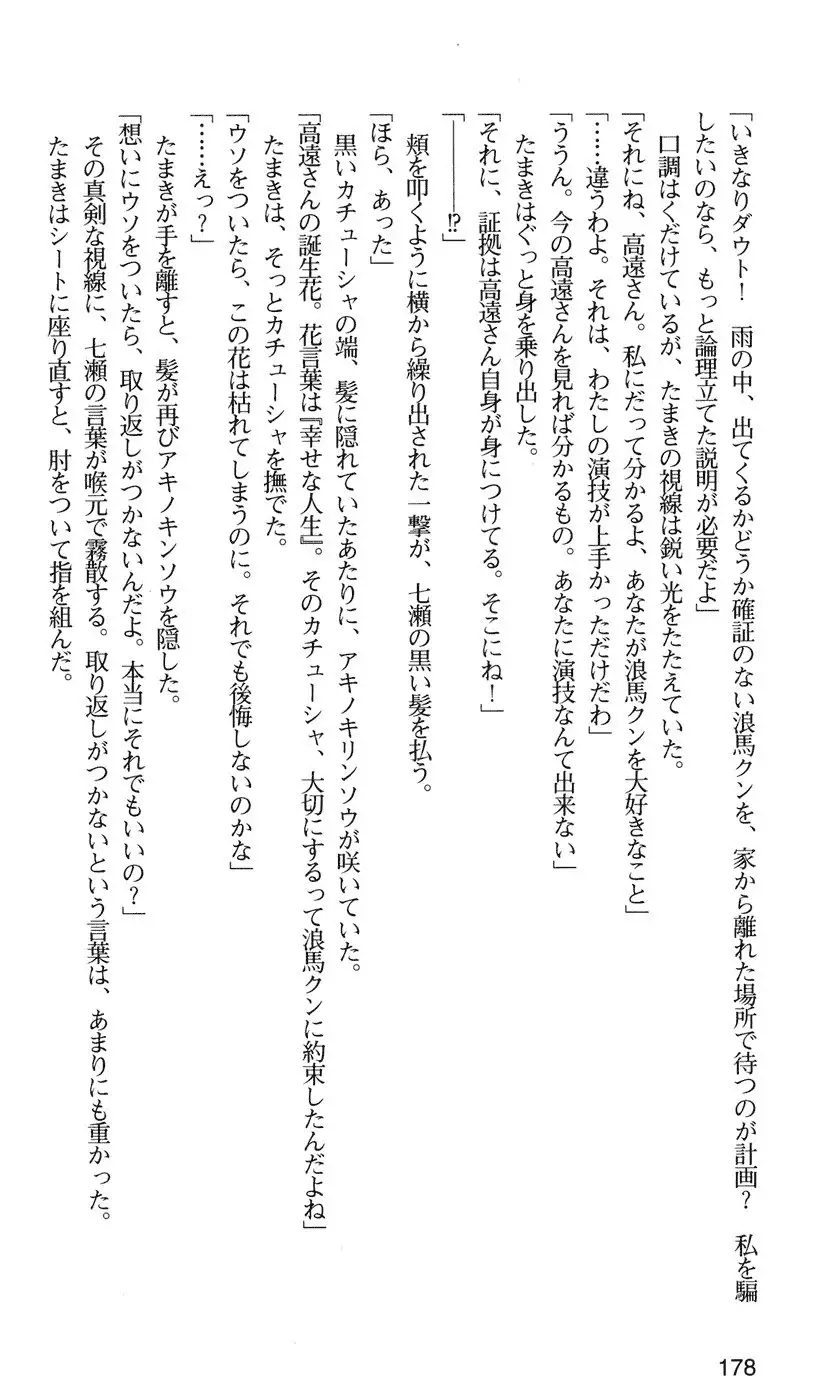 「いきなりダウト！　雨の中、出てくるかどうか確証のない浪馬クンを、家から離れた場所で待つのが計画？　私を騙
したいのなら、もっと論理立てた説明が必要だよ」
　口調はくだけているが、たまきの視線は鋭い光をたたえていた。
「それにね、高遠さん。私にだって分かるよ、あなたが浪馬クンを大好きなこと」
「……違うわよ。それは、わたしの演技が上手かっただけだわ」
「ううん。今の高遠さんを見れば分かるもの。あなたに演技なんて出来ない」
　たまきはぐっと身を乗り出した。
「それに、証拠は高遠さん自身が身につけてる。そこにね！」
「―――⁉」
　頬を叩くように横から繰り出された一撃が、七瀬の黒い髪を払う。
「ほら、あった」
　黒いカチューシャの端、髪に隠れていたあたりに、アキノキリンソウが咲いていた。
「高遠さんの誕生花。花言葉は『幸せな人生』。そのカチューシャ、大切にするって浪馬クンに約束したんだよね」
　たまきは、そっとカチューシャを撫でた。
「ウソをついたら、この花は枯れてしまうのに。それでも後悔しないのかな」
「……えっ？」
　たまきが手を離すと、髪が再びアキノキンソウを隠した。
「想いにウソをついたら、取り返しがつかないんだよ。本当にそれでもいいの？」
　その真剣な視線に、七瀬の言葉が喉元で霧散する。取り返しがつかないという言葉は、あまりにも重かった。
　たまきはシートに座り直すと、肘をついて指を組んだ。
178